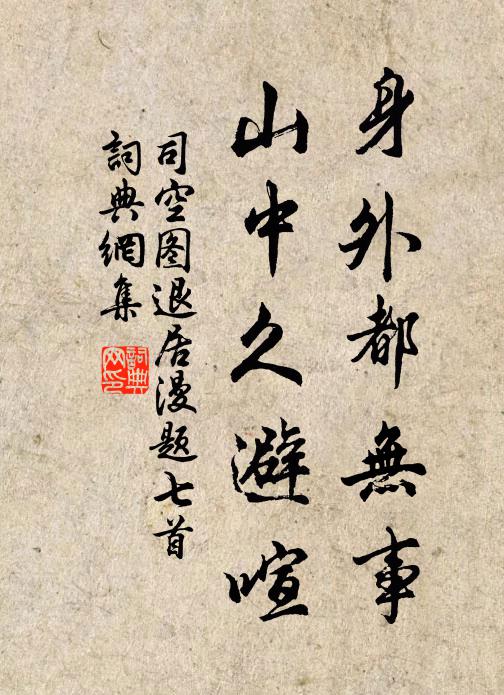 身外都無事
山中久避喧
司空图退居漫题七首
詞典網集
詞典
网印